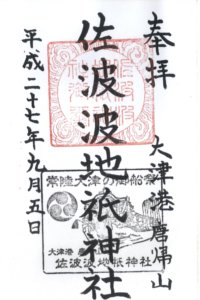 奉拝
大津港唐帰山
佐波波地祇神社
平成二十七年九月五日
常陸大津の御船祭
大津港 唐
佐波波地祇神社